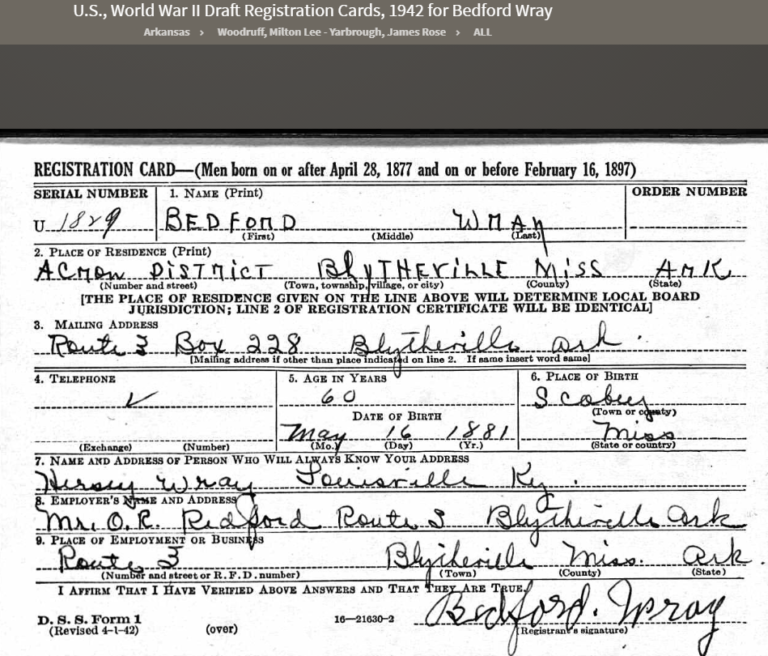 U.S., World War II Draft Registration Cards, 1942 for Bedford Wray
Arkansas > Woodruff, Milton Lee - Yarbrough, James Rose > ALL
REGISTRATION CARD—(Men born on or after April 28, 1877 and on or before February 16, 1897)
SERIAL NUMBER 1. NAME (Print) ORDER NUMBER
U 1829 BEDFORD WRAY
(First) (Middle) (Last)
2. PLACE OF RESIDENCE (Print)
ACRON DISTRICT BLYTHEVILLE MISS ARK
(Number and street) (Town, township, village, or city) (County) (State)
[THE PLACE OF RESIDENCE GIVEN ON THE LINE ABOVE WILL DETERMINE LOCAL BOARD
JURISDICTION; LINE 2 OF REGISTRATION CERTIFICATE WILL BE IDENTICAL]
3. MAILING ADDRESS
Route 3 Box 228 Blytheville Ark.
[Mailing address if other than place indicated on line 2. If same insert word same]
4. TELEPHONE 5. AGE IN YEARS 6. PLACE OF BIRTH
60 Scobey
(Town or county)
DATE OF BIRTH
May 16 1881 Miss
(Exchange) (Number) (Mo.) (Day) (Yr.) (State or country)
7. NAME AND ADDRESS OF PERSON WHO WILL ALWAYS KNOW YOUR ADDRESS
Hersey Wray Louisville Ky.
8. EMPLOYER'S NAME AND ADDRESS
Mr. O.R. Redford Route 3 Blytheville Ark
9. PLACE OF EMPLOYMENT OR BUSINESS
Route 3 Blytheville Miss. Ark.
(Number and street or R. F. D. number) (Town) (County) (State)
I AFFIRM THAT I HAVE VERIFIED ABOVE ANSWERS AND THAT THEY ARE TRUE.
D. S. S. Form 1 Bedford. Wray
(Revised 4-1-42) (over) 16—21630-2 (Registrant's signature)